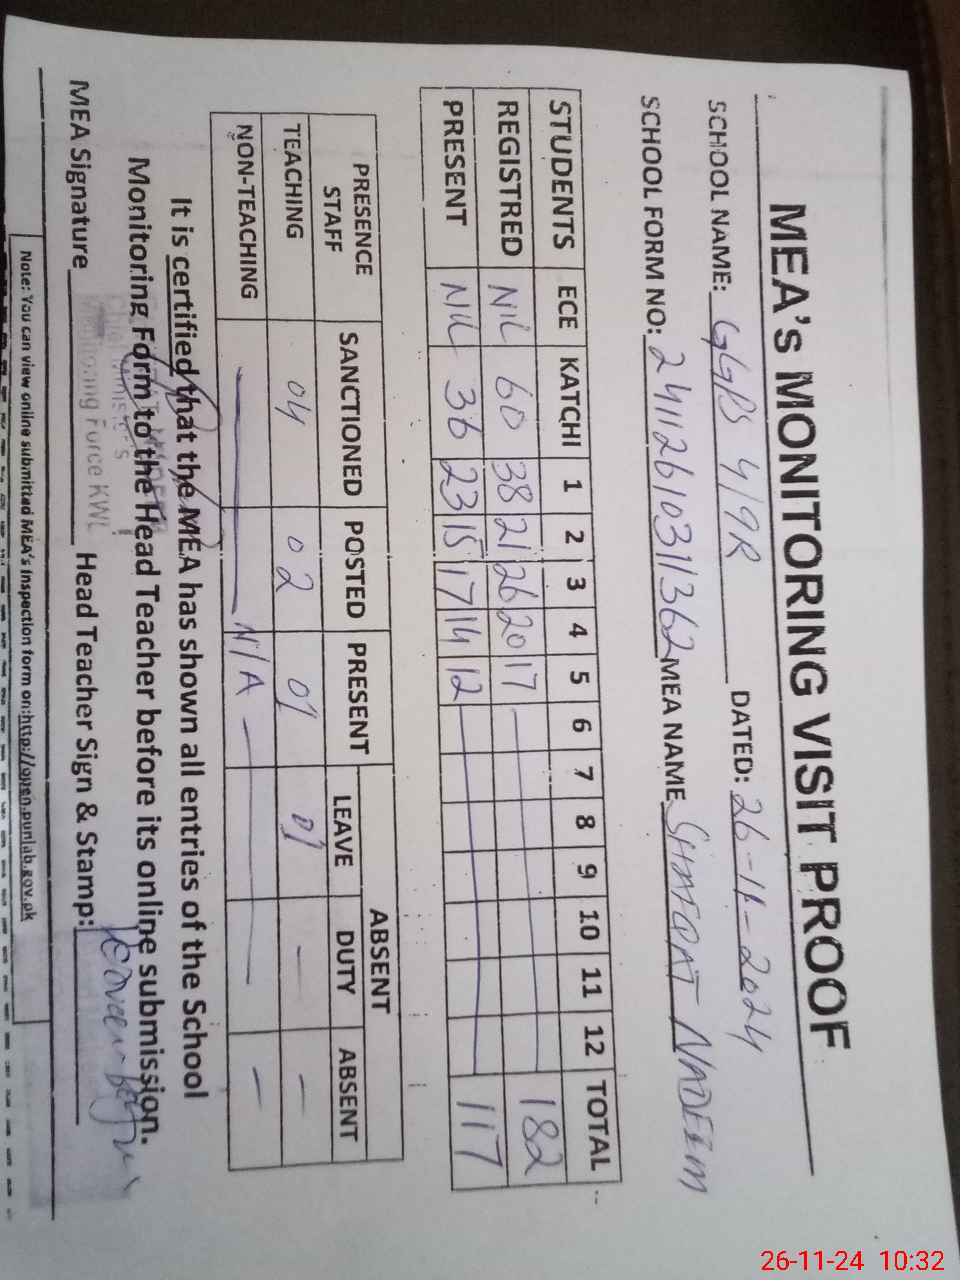 MEA's MONITORING VISIT PROOF
SCHOOL NAME: GGPS 4/9R DATED: 26-11-2024
SCHOOL FORM NO: 24112610311362 MEA NAME SHAFQAT NADEEM
STUDENTS ECE KATCHI 1 2 3 4 5 6 7 8 9 10 11 12 TOTAL
REGISTRED NIL 60 38 21 26 20 17 182
PRESENT NIL 36 23 15 17 14 12 117
PRESENCE STAFF SANCTIONED POSTED PRESENT ABSENT
LEAVE DUTY ABSENT
TEACHING 04 02 01 01 — —
NON-TEACHING — N/A — —
It is certified that the MEA has shown all entries of the School
Monitoring Form to the Head Teacher before its online submission.
MEA Signature Head Teacher Sign & Stamp:
Monitoring Force KWL
Note: You can view online submitted MEA's inspection form on:http://open.punjab.gov.pk
26-11-24 10:32